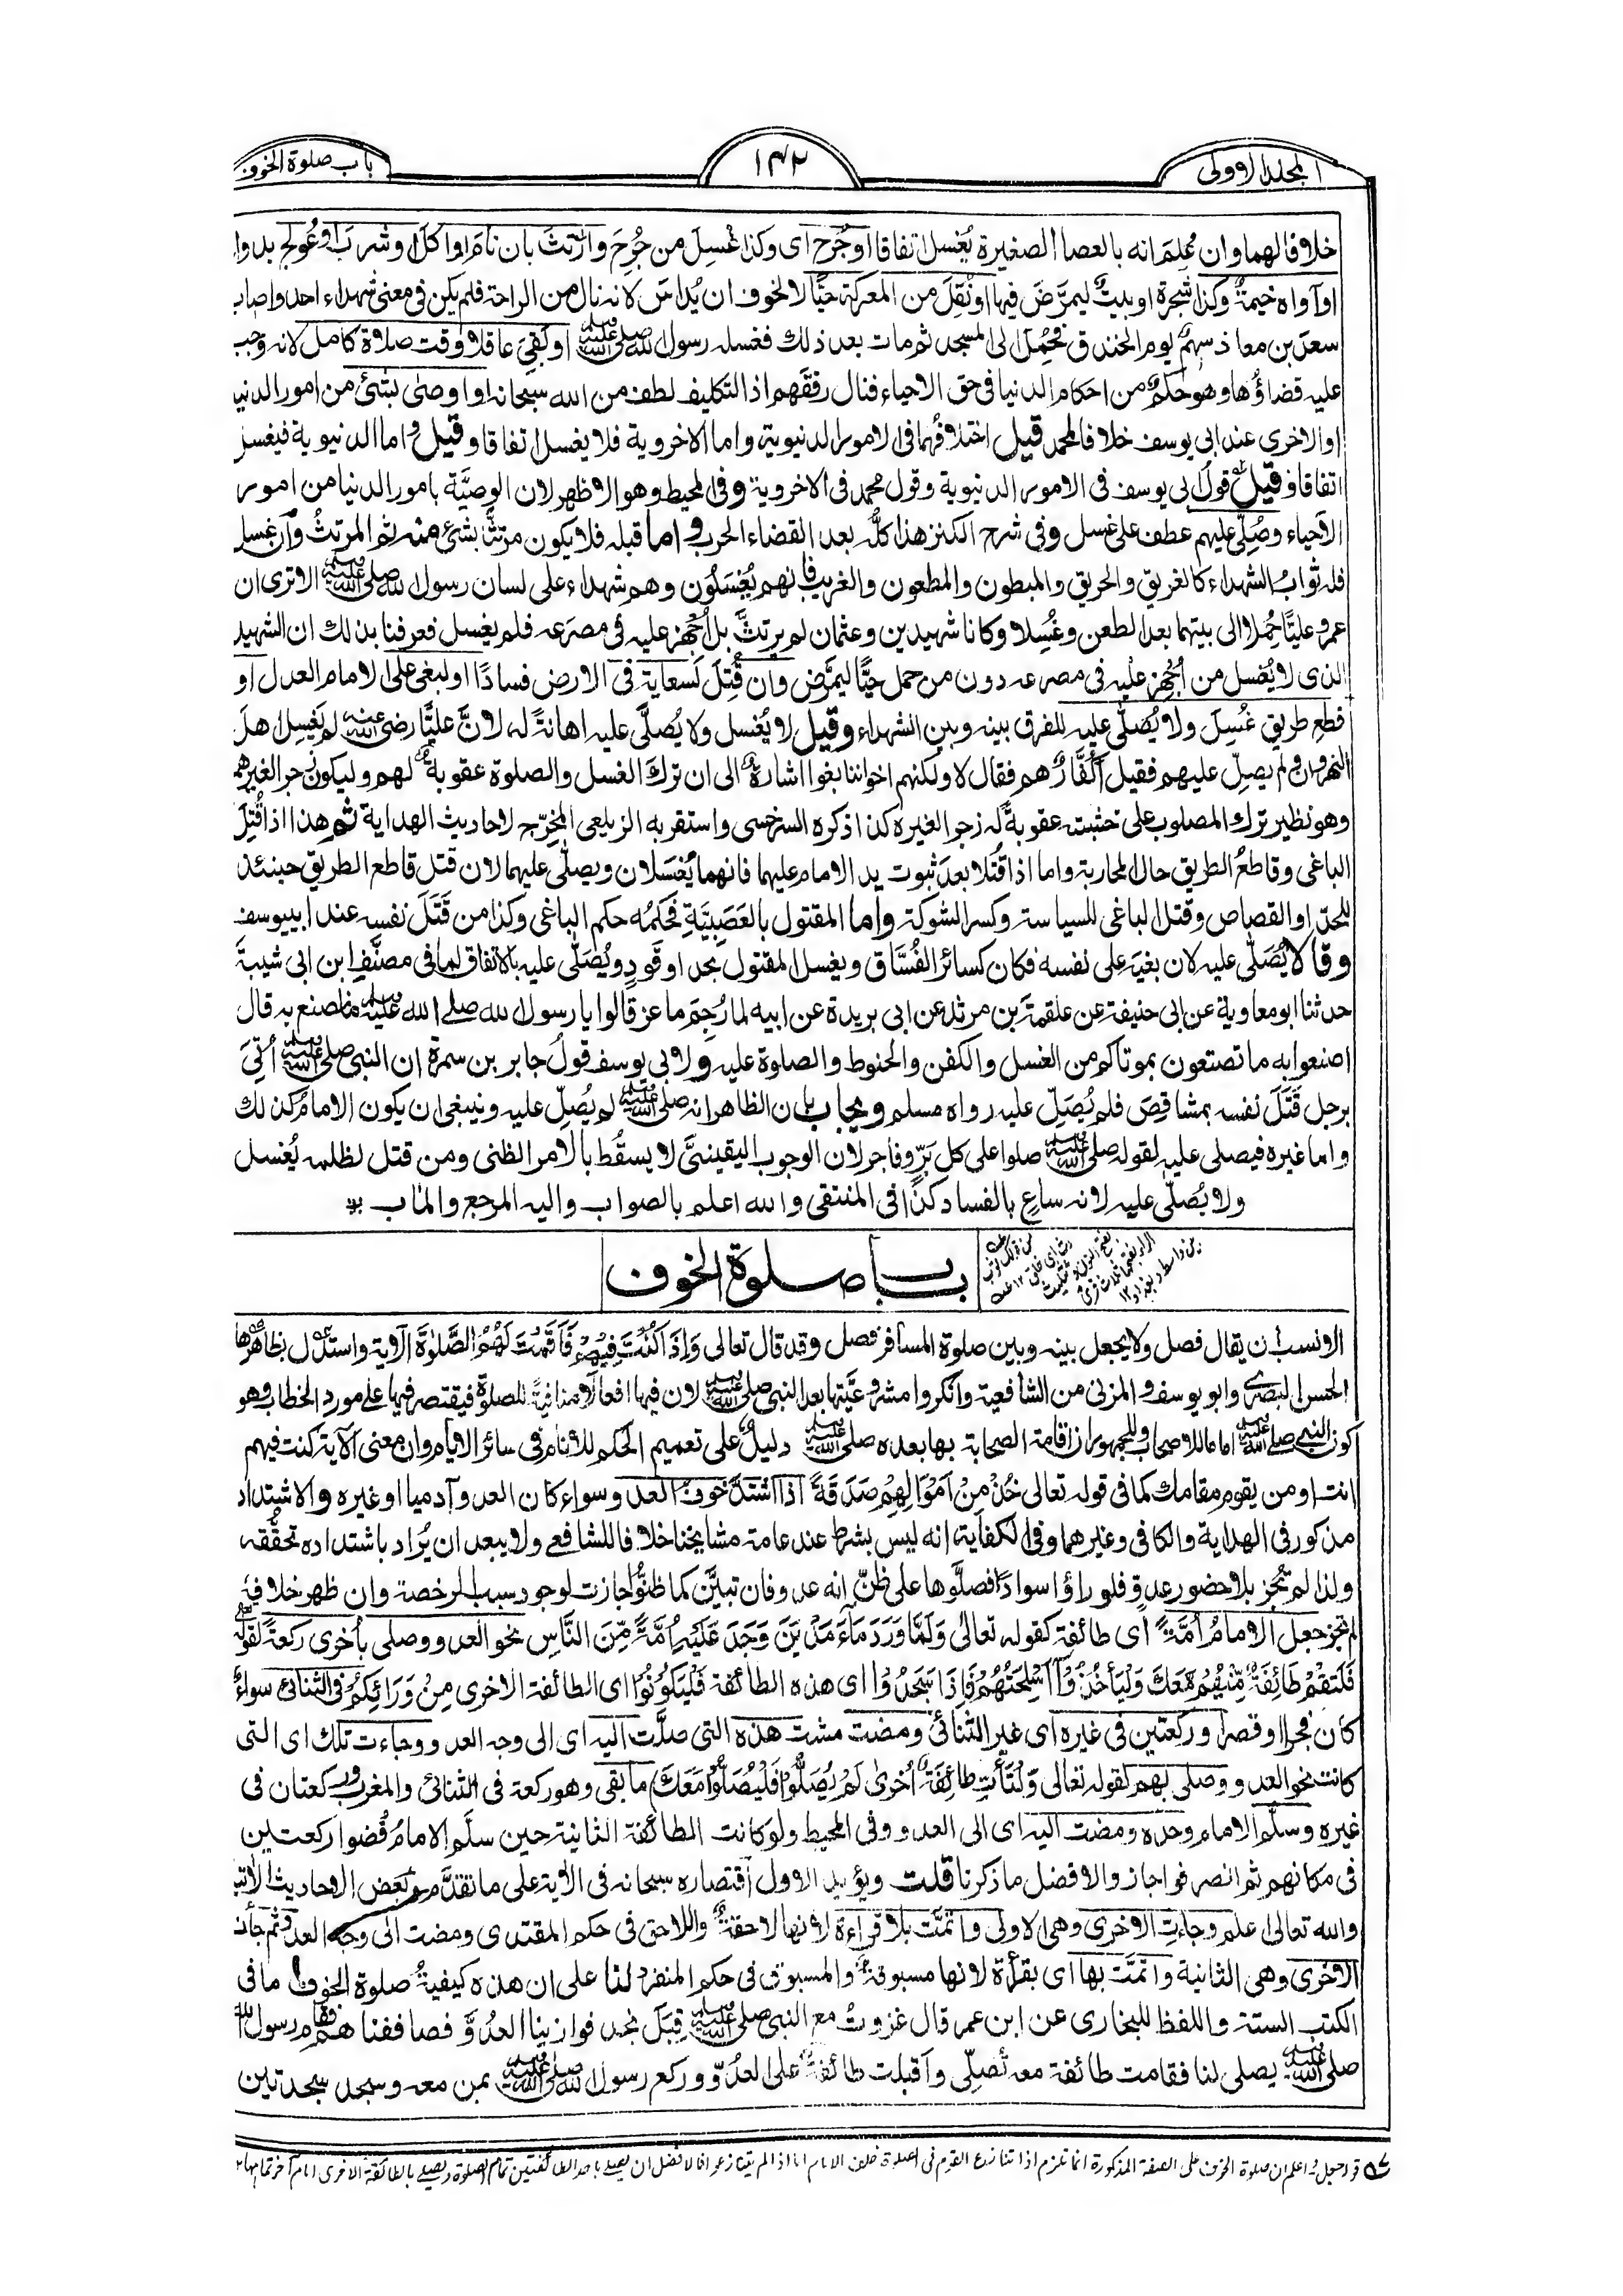 المجلد الاولى
١٤٢
باب صلوة الخوف
خلافا لهما وان عُلِمَ انه بالعصا الصغيرة يُغسل اتفاقا اوجُرح اى وكذا غُسِلَ من جُرِحَ وارْتثّ بان نام او اكل او شرب او عُولج بدوا
او آواه خيمةٌ وكذا شجرة او بيتٌ ليمرَّضَ فيها او نُقِلَ من المعركة حيًّا لا لخوف ان يُداسَ لانه نال من الراحة فلم يكن فى معنى شهداء احد واصاب
سعد بن معاذ سهمٌ يوم الخندق فحُمِلَ الى المسجد ثم مات بعد ذلك فغسله رسول الله صلى الله عليه وسلم او بَقِىَ عاقلا وقت صلاة كامل لانه وجب
عليه قضاؤُها وهو حكمٌ من احكام الدنيا فى حق الاحياء فنال رفقهم اذ التكليف لطف من الله سبحانه او اوصٰى بشئ من امور الدنيا
او الاخرى عند ابى يوسف خلافا لمحمد قيل اختلافُهما فى الامور الدنيوية واما الاخروية فلا يغسل اتفاقا وقيل واما الدنيوية فيغسل
اتفاقا وقيل قولُ ابى يوسف فى الامور الدنيوية وقول محمد فى الاخروية وفى المحيط وهو الاظهر لان الوصيَّة بامور الدنيا من امور
الاحياء وصُلِّى عليهم عطف على غسل وفى شرح الكنز هذا كلُّه بعد انقضاء الحرب واما قبله فلا يكون مرتثًّا بشئ منه ثم المرتثُ وان غسل
فله ثوابُ الشهداء كالغريق والحريق والمبطون والمطعون والغريب فانهم يُغسَلُون وهم شهداء على لسان رسول الله صلى الله عليه وسلم الا ترى ان
عمر وعليًّا حُمِلا الى بيتهما بعد الطعن وغُسِلا وكانا شهيدين وعثمان لم يرتثَّ بل اُجهز عليه فى مصرعه فلم يغسل فعرفنا بذلك ان الشهيد
الذى لا يُغسل من اُجْهز عليه فى مصرعه دون من حمل حيًّا ليمرَّض وان قُتِلَ لسعاية فى الارض فسادًا او لبغى على الامام العدل او
قطع طريق غُسِلَ ولا يُصلّٰى عليه للفرق بينه وبين الشهداء وقيل لا يُغسل ولا يُصلّى عليه اهانةً له لانَّ عليًّا رضى الله عنه لم يَغسل اهلَ
النهروان ولم يصلِّ عليهم فقيل أكفَّارٌ هم فقال لا ولكنهم اخواننا بغوا اشارة الى ان تركَ الغسل والصلوة عقوبة لهم وليكون زجر الغيرهم
وهو نظير ترك المصلوب على خشبته عقوبةً له زجر الغيره كذا ذكره السرخسى واستقر به الزيلعى المخرّج لاحاديث الهداية ثم هذا اذا قُتِلَ
الباغى وقاطعُ الطريق حال المحاربة واما اذا قُتلا بعد ثبوت يد الامام عليهما فانهما يُغسَلان ويصلّٰى عليهما لان قتل قاطع الطريق حينئذ
للحدّ او القصاص وقتل الباغى للسياسة وكسر الشوكة واما المقتول بالعَصَبِيَّةِ فحُكمُه حكم الباغى وكذا من قَتَلَ نفسه عند ابى يوسف
وقالا يُصَلّى عليه لان بغيَه على نفسه فكان كسائر الفُسَّاق ويغسل المقتول بحد او قَودٍ ويُصَلّٰى عليه بالاتفاق لما فى مصنَّفِ ابن ابى شيبة
حدثنا ابو معاوية عن ابى حنيفة عن علقمة بن مرثد عن ابى بريدة عن ابيه لما رُجِمَ ماعز قالوا يا رسول الله صلے الله عليه وسلم ما نصنع به قال
اصنعوا به ما تصنعون بموتاكم من الغسل والكفن والحنوط والصلوة عليه ولابى يوسف قولُ جابر بن سمرة ان النبى صلى الله عليه وسلم اُتِىَ
برجل قَتَلَ نفسه بمشاقِصَ فلم يُصَلِّ عليه رواه مسلم ويجاب بان الظاهر انه صلى الله عليه وسلم لم يُصَلِّ عليه وينبغى ان يكون الامامُ كذلك
واما غيره فيصلى عليه لقوله صلى الله عليه وسلم صلوا على كل بَرّ وفاجر لان الوجوب اليقينىَّ لا يسقُط بالامر الظنى ومن قتل لظلمه يُغسل
ولا يُصلّى عليه لانه ساعٍ بالفساد كذا فى المنتقى والله اعلم بالصواب واليه المرجع والماٰب
باب صلوة الخوف
الانسب ان يقال فصل ولا يجعل بينه وبين صلوة المسافر فصل وقد قال تعالى وَاِذَا كُنْتَ فِيْهِمْ فَاَقَمْتَ لَهُمُ الصَّلٰوةَ الاٰية واستدل بظاهرها
الحسن البصرے وابو يوسف والمزنى من الشافعية وانكروا مشروعيَّتها بعد النبى صلى الله عليه وسلم لان فيها افعالًا منافيةً للصلوة فيقتصر فيها علے مورد الخطاب وهو
كون النبى صلے الله عليه وسلم اماما للاصحاب وللجمهور ان اقامة الصحابة بها بعده صلى الله عليه وسلم دليلٌ على تعميم الحكم للانام فى سائر الايام وان معنى الآية كنت فيهم
انت او من يقوم مقامك كما فى قوله تعالى خُذْ مِنْ اَمْوَالِهِمْ صَدَقَةً اذا اشتدَّ خوفُ العدو سواء كان العدو آدميا او غيره والاشتداد
مذكور فى الهداية والكافى وغيرهما وفى الكفاية انه ليس بشرط عند عامة مشايخنا خلافا للشافعے ولا يبعد ان يُراد باشتداده تحقُّقه
ولذا لم تجُز بلا حضور عدوٍّ فلو راؤا سوادًا فصلَّوها على ظنّ انه عدو فان تبيَّن كما ظنُّوا جازت لوجود سبب الرخصة وان ظهر خلافُه
لم تجز جعل الامامُ اُمَّةً اى طائفة كقوله تعالٰى وَلَمَّا وَرَدَ مَاۤءَ مَدْيَنَ وَجَدَ عَلَيْهِ اُمَّةً مِّنَ النَّاسِ نحو العدو وصلى بأخرى ركعةً لقوله
فَلْتَقُمْ طَائِفَةٌ مِّنْهُمْ مَّعَكَ وَلْيَأْخُذُوْا اَسْلِحَتَهُمْ فَاِذَا سَجَدُوْا اى هذه الطائفة فَلْيَكُوْنُوْا اى الطائفة الاخرى مِنْ وَرَائِكُمْ فى الثنائى سواءٌ
كان فجرا او قصرا وركعتين فى غيره اى غير الثنائى ومضت مشت هذه التى صلَّت اليه اى الى وجه العدو وجاءت تلك اى التى
كانت نحو العدو وصلى بهم لقوله تعالى وَلْتَأْتِ طَائِفَةٌ اُخْرٰى لَمْ يُصَلُّوْا فَلْيُصَلُّوْا مَعَكَ ما بقى وهو ركعة فى الثنائى والمغرب وركعتان فى
غيره وسلَّم الامام وحده ومضت اليه اى الى العدو وفى المحيط ولو كانت الطائفة الثانية حين سلَّم الامامُ قضوا ركعتين
فى مكانهم ثم انصرفوا جاز والافضل ما ذكرنا قلت ويؤيد الاول اقتصاره سبحانه فى الاٰية على ما تقدَّم وبعض الاحاديث الاتية
والله تعالى اعلم وجاءتِ الاخرى وهى الاولى واتمَّت بلا قراءة لانها لاحقةٌ واللاحق فى حكم المقتدى ومضت الى وجه العدو ثم جاءت
الاخرى وهى الثانية واتمَّت بها اى بقرأة لانها مسبوقة والمسبوق فى حكم المنفرد لنا على ان هذه كيفيةُ صلوة الخوف ما فى
الكتب الستة واللفظ للبخارى عن ابن عمر قال غزوتُ مع النبى صلى الله عليه وسلم قِبَلَ نجد فوازينا العدُوَّ فصاففنا هم فقام رسول الله
صلى الله عليه وسلم يصلى لنا فقامت طائفة معه تُصلِّى واَقبلت طائفةٌ على العدُوّ وركع رسول الله صلى الله عليه وسلم بمن معه وسجد سجدتين
قوله جعل الخ اعلم ان صلوة الخوف على الصفة المذكورة انما تلزم اذا تنازع القوم فى الصلوة خلف الامام اما اذا لم يتنازعوا فالافضل ان يصلے باحد الطائفتين تمام الصلوة ويصلے بالطائفة الاخرى امام آخر تمامها ١٢